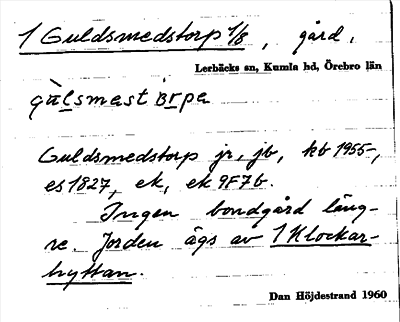 1 Guldsmedstorp 1/8, gård.
Lerbäcks sn, Kumla hd, Örebro län
gùlsmastɔrpa
Guldsmedstorp jr, jb, kb 1955-,
es 1827, ek, ek 9F7b.
Ingen bondgård läng-
re. Jorden ägs av 1 Klockar-
hyttan.
Dan Höjdestrand 1960